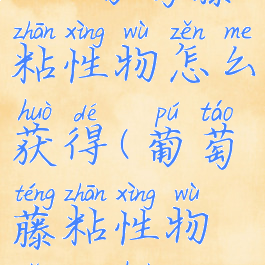 zhān xìng wù zěn me
粘性物怎么
huò dé pú táo
获得(葡萄
téng zhān xìng wù
藤粘性物